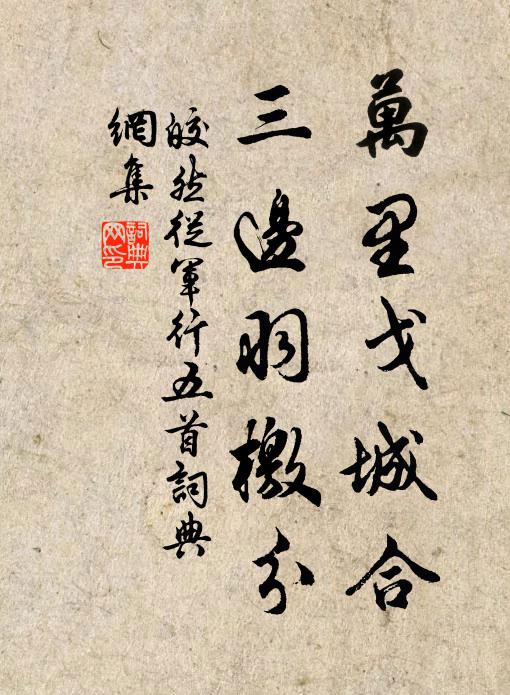 萬里戈城合
三邊羽檄分
皎然從軍行五首詞典
網集
詞典
网印